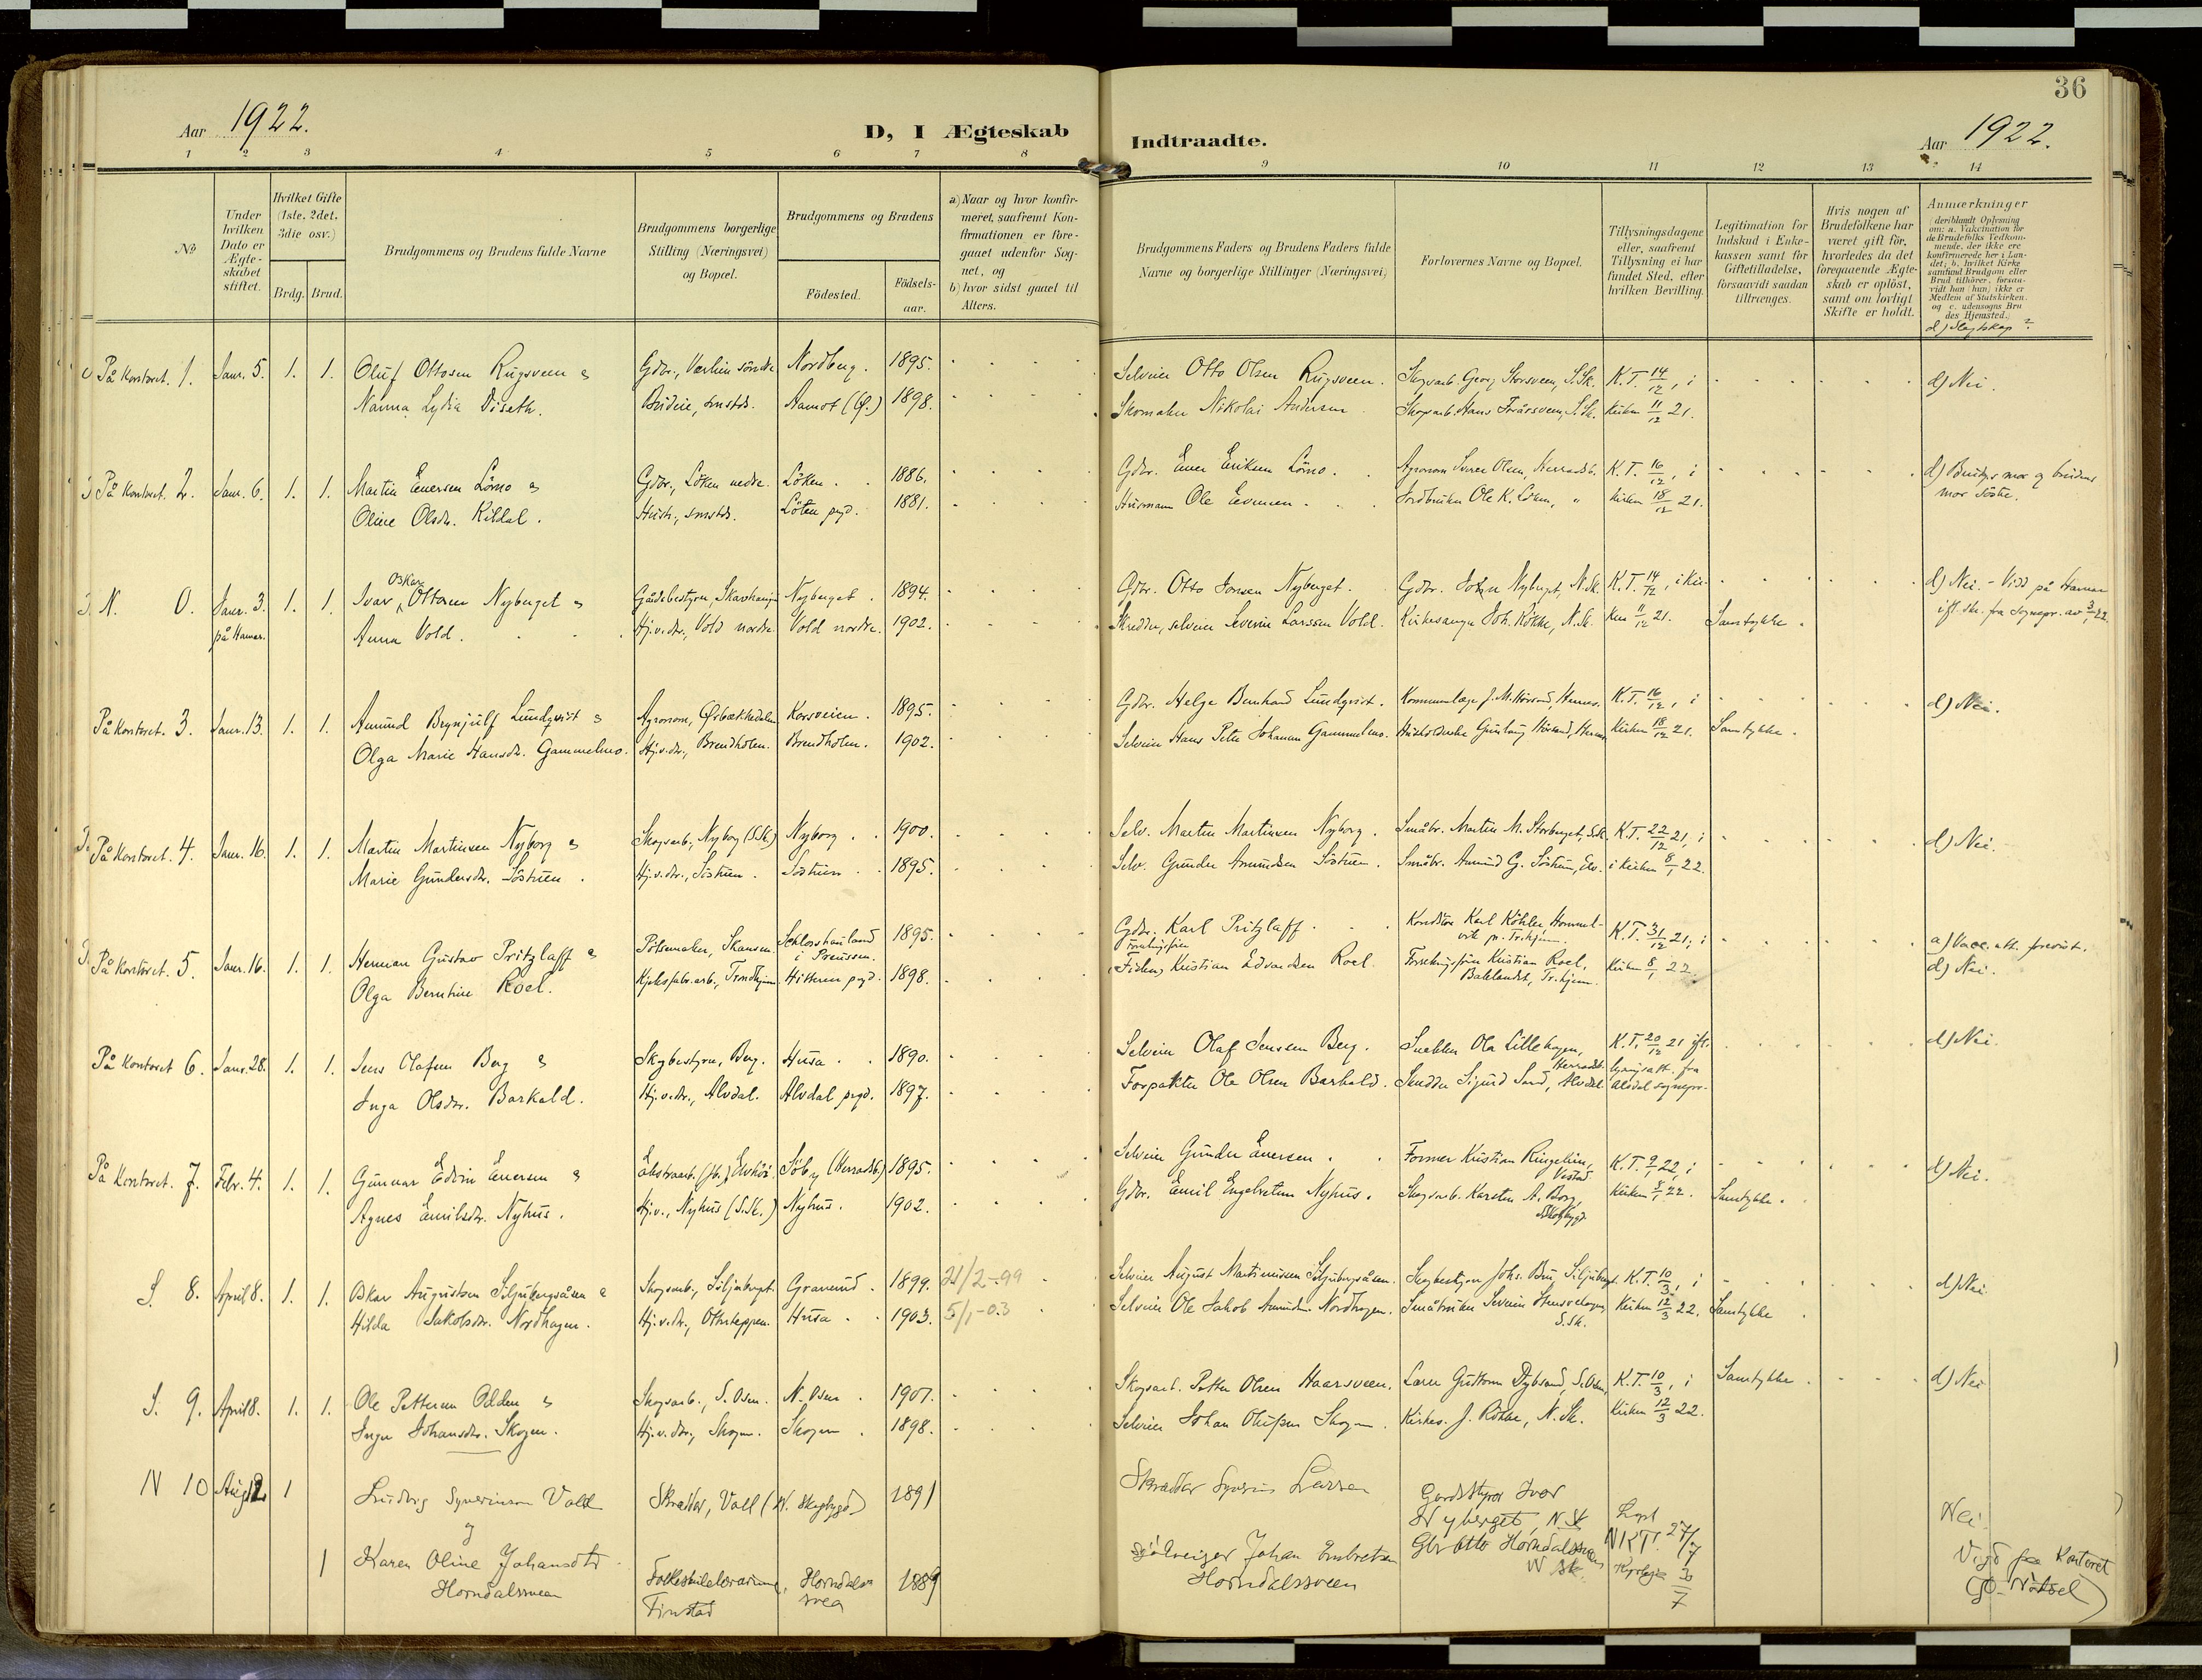 36
Aar 1922.
D, I Ægteskab
Indtraadte.
Aar 1922.
1 2 3 4 5 6 7 8
9 10 11 12 13 14
No
Under hvilken Dato er Ægteskabet stiftet.
Hvilket Gifte (1ste, 2det, 3die osv.)
Brdg. Brud.
Brudgommens og Brudens fulde Navne
Brudgommens borgerlige Stilling (Næringsvei) og Bopæl.
Brudgommens og Brudens
Fødested.
Fødsels-aar.
a) Naar og hvor konfirmeret, saafremt Konfirmationen er foregaaet udenfor Sognet, og
b) hvor sidst gaaet til Alters.
Brudgommens Faders og Brudens Faders fulde Navne og borgerlige Stillinger (Næringsvei)
Forlovernes Navne og Bopæl.
Tillysningsdagene eller, saafremt Tillysning ei har fundet Sted, efter hvilken Bevilling.
Legitimation for Indskud i Enkekassen samt for Giftetilladelse, forsaavidt saadan tiltrænges.
Hvis nogen af Brudefolkene har været gift før, hvorledes da det foregaaende Ægteskab er opløst, samt om lovligt Skifte er holdt.
Anmærkninger
(deriblandt Oplysning om: a. Vakcination for de Brudefolks Vedkommende, der ikke ere konfirmerede her i Landet; b. hvilket Kirkesamfund Brudgom eller Brud tilhører, forsaavidt han (hun) ikke er Medlem af Statskirken, og c. udensogns Brudes Hjemsted.)
d) Slægtskap?
På Kontoret. 1. Janr. 5. 1. 1. Oluf Ottosen Rugsveen & Gdbr., søndre Nordberg. 1895. Selveier Otto Olsen Rugsveen. Skogsarb. Georg Storsveen, S.Sk. K.T. 14/12, i d) Nei.
Nanna Lydia Diseth. Budeie, smstds. Aamot (Ø.) 1898. Skomaker Nikolai Andersen Skogsarb. Hans S.Sk. Kirken 11/12 21.
På Kontoret. 2. Janr. 6. 1. 1. Martin Enersen Lömo & Gdbr., Löken nedre. Löken. 1886. Gdbr. Ener Eriksen Lömo. Agronom Sverre Olsen, Herradsb. K.T. 16/12, i d) Brudgs mor og brudens
Oline Olsdr. Kildal. Hush., smstds. Löten prgd. 1881. Husmann Ole Evensen. Jordbruker Ole K. Löken, " Kirken 18/12 21. mor söstre.
N. 0. Janr. 3. 1. 1. Ivar Oskar Ottosen Nyberget & Gårdsbestyrer, Nyberget. 1894. Gdbr. Otto Jonsen Nyberget. Gdbr. John Nyberget, N.Sk. K.T. 14/12, i Kir- d) Nei. - Viet på Hamar
på Hamar. Anna Vold. Hj.v.dtr., Vold nordre. Vold nordre. 1902. Skredder, selveier Severin Larssen Vold. Kirkesanger Joh. Rökke, N.Sk. ken 11/12 21. Samtykke. ifl. skr. fra sognepr. av 3/1 22.
På Kontoret. 3. Janr. 13. 1. 1. Amund Brynjulf Lundqvist & Agronom, Korsveien. 1895. Gdbr. Helge Bernhard Lundqvist. Kommunelæge J. M. K.T. 16/12, i d) Nei.
Olga Marie Hansdr. Gammelmo. Hj.v.dtr., Brendholen. Brendholen. 1902. Selveier Hans Peter Johansen Gammelmo. Kirken 18/12 21. Samtykke.
På Kontoret. 4. Janr. 16. 1. 1. Martin Martinsen Nyborg & Skogsarb., Nyborg (S.Sk.) Nyborg. 1900. Selv. Martin Martinsen Nyborg. Småbr. Martin M. Storberget, S.Sk. K.T. 22/12 21, i d) Nei.
Marie Gundersdr. Söstuen. Hj.v.dtr., Söstuen. Söstuen. 1895. Selv. Gunder Amundsen Söstuen. Småbr. Amund G. Söstuen, Elv. i Kirken 8/1 22.
På Kontoret. 5. Janr. 16. Herman Gustav Pritzlaff & Pölsemaker, Skansen. i Preussen. 1895. Gdbr. Karl Pritzlaff. Konditor Karl Köhler Hommelvik pr. Tr.hjem. K.T. 31/12 21, i a) Vacc. att. forevist.
Olga Berntine Roel. Kjeksfabr.arb., Trondhjem. Hitteren prgd. 1898. (Fisker) Kristian Edvardsen Roel. Kristian Roel, Baklandet, Tr.hjem. Kirken 8/1 22. d) Nei.
På Kontoret 6. Janr. 28. 1. 1. Jens Olafsen Berg & Skogbestyrer, Berg. Husa. 1890. Selveier Olaf Jensen Berg. Snekker Ola Lillehagen, Herradsb. K.T. 20/12 21 ifl. d) Nei.
Inga Olsdr. Barkald. Hj.v.dtr., Alvdal. Alvdal prgd. 1897. Forpakter Ole Olsen Barkald. Skredder Sigurd Sand, Alvdal lysingsatt. fra Alvdal sognepr.
På Kontoret. 7. Febr. 4. 1. 1. Gunnar Edvin Enersen & Söby (Herradsb.) 1895. Selveier Gunder Enersen. Former Kristian Ringelien, K.T. 9/1 22, i d) Nei.
Agnes Emilsdr. Nyhus. Hj.v., Nyhus (S.Sk.) Nyhus. 1902. Gdbr. Emil Engebretsen Nyhus. Skogsarb. Karsten A. Borg, Skogbygd. Kirken 8/1 22. Samtykke.
S. 8. April 8. 1. 1. Oskar Augustsen Siljubergsåsen & Skogsarb., Siljuberget. Graverud. 1899. 21/2-99 Selveier August Martinussen Siljubergsåsen. Skogbestyrer Johs. Bru, Siljuberget. K.T. 10/3, i d) Nei.
Hilda Jakobsdr. Nordhagen. Hj.v.dtr., Otterteppen. Husa. 1903. 5/1-03 Selveier Ole Jakob Amundsen Nordhagen. Småbruker Severin S.Sk. Kirken 12/3 22. Samtykke
S. 9. April 8. 1. 1. Ole Pettersen Odden & Skogsarb., S. Osen. N. Osen. 1901. Skogsarb. Petter Olsen Haarsveen. Lærer Guttorm Dybsand, S. Osen, K.T. 10/3, i Samtykke. d) Nei
Inga Johansdr. Skogen. Hj.v.dtr., Skogen. Skogen. 1898. Selveier Johan Olufsen Skogen. Kirkes. J. Rökke, N.Sk. Kirken 12/3 22.
N 10 Aug 12 1 Ludvig Syverinsen Vold Skrædder, Voll (N. Skogbygd) 1891 Skrædder Syverin Larsen Gardsstyrer Ivar Nyberget, N.Sk Lyst NKT. 27/7 Nei.
og
1 Karen Oline Johansdtr. Horndalssveen Folkeskolelærarinne, Finstad Horndalssvea 1889 Sjølveiger Johan Embretsen Horndalssveen Gbr Otto Horndalssveen N Sk. 30/7 Vigd fra Kontoret